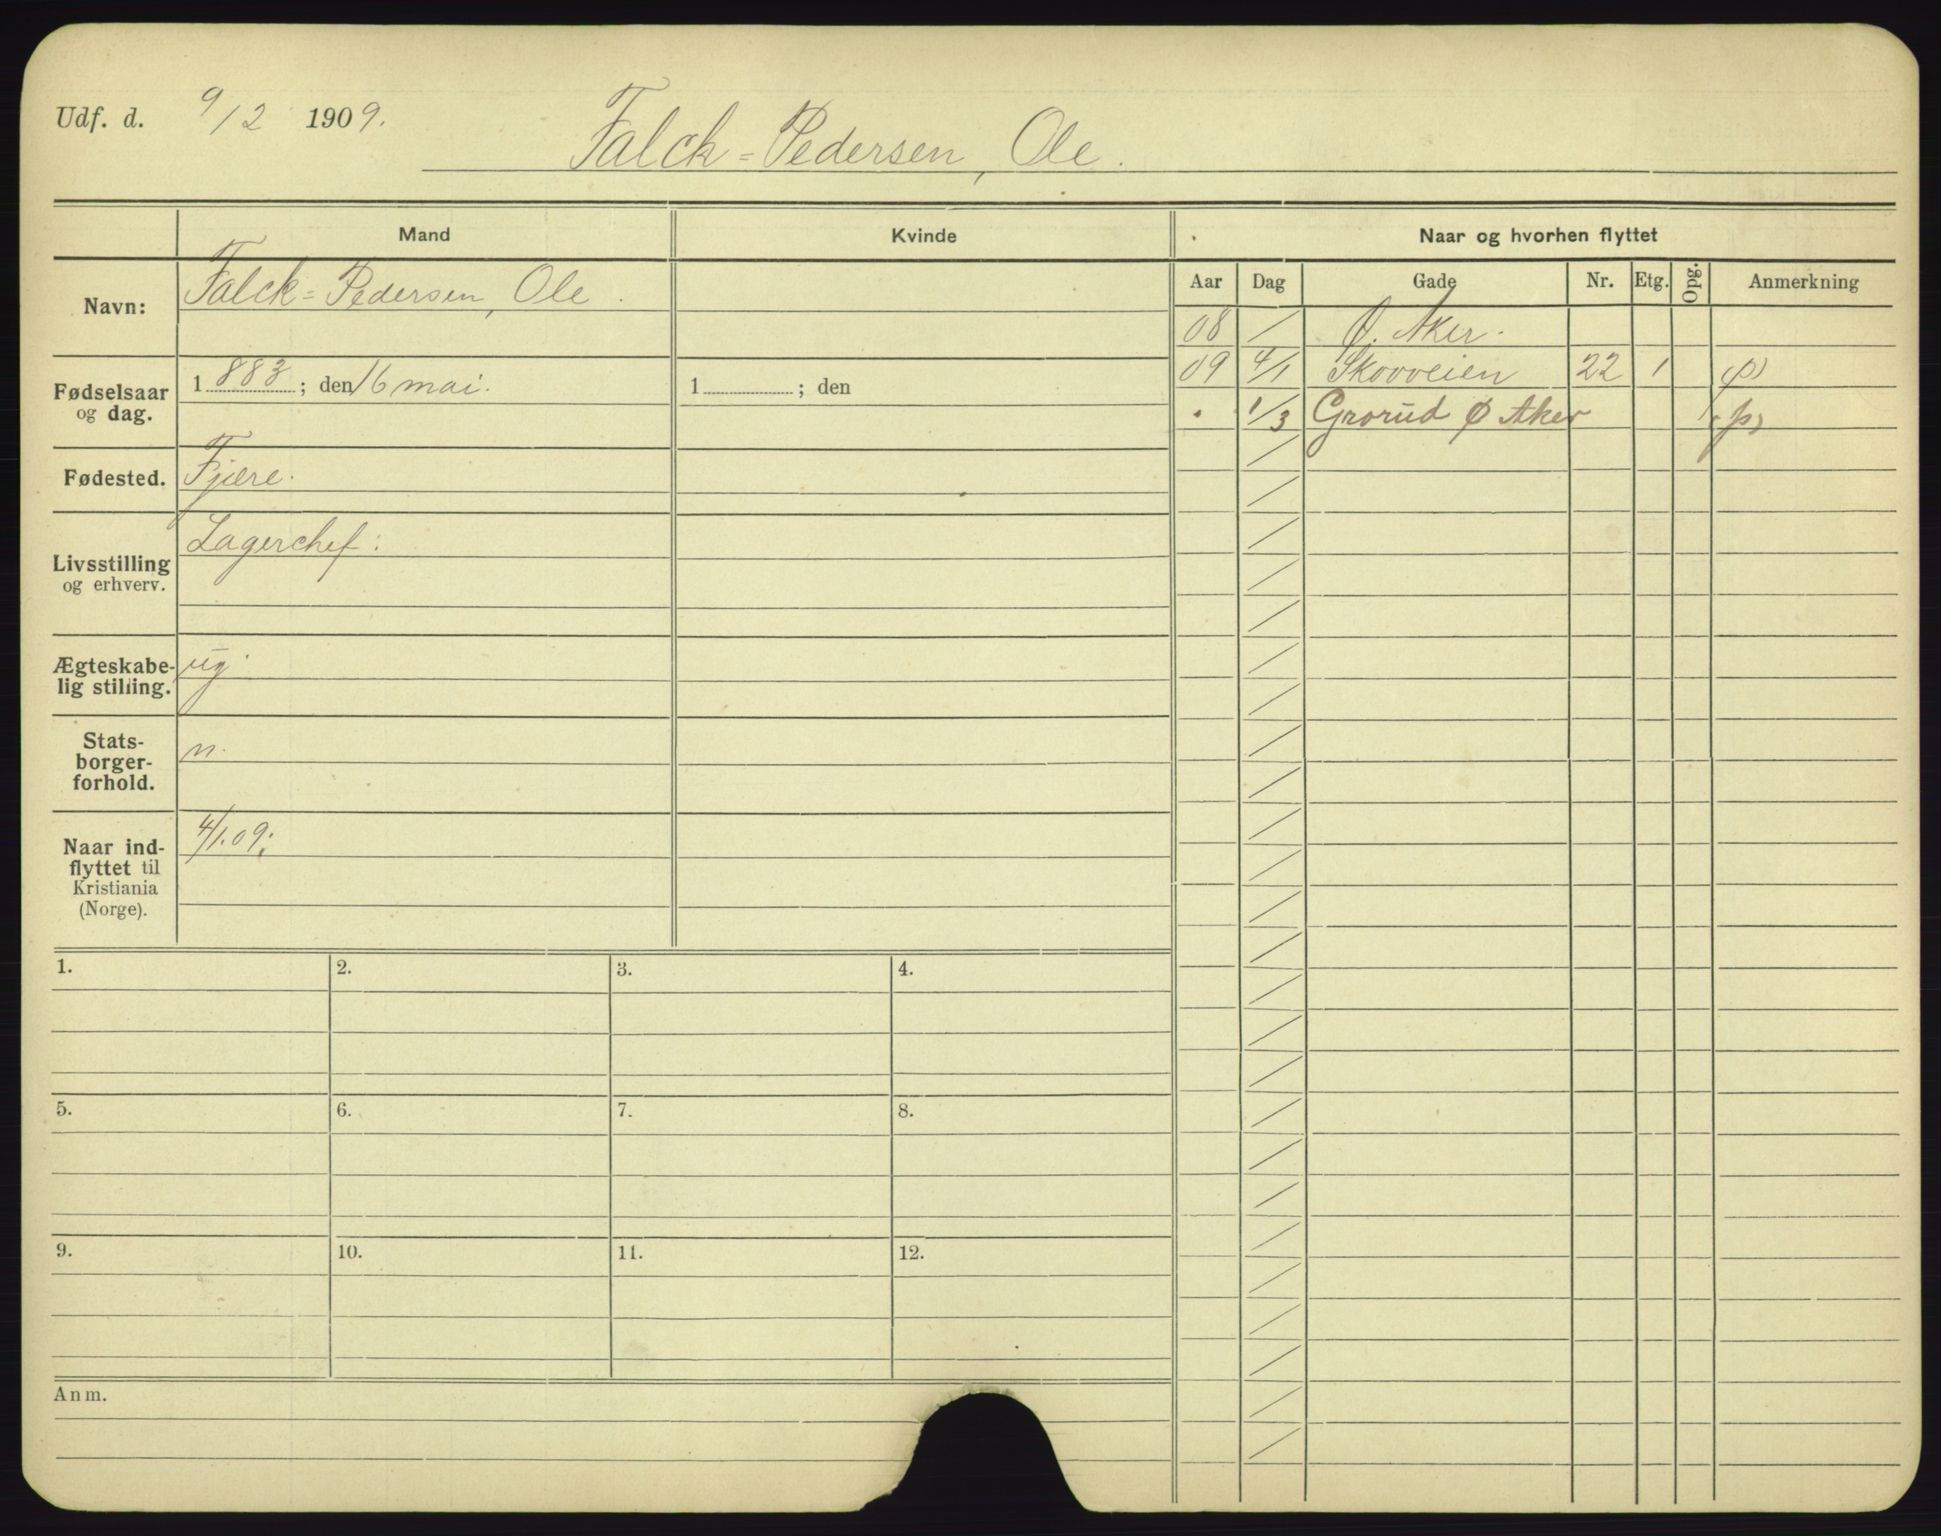 Udf. d. 9/2 1909.
Falck=Pedersen, Ole.
Mand Kvinde Naar og hvorhen flyttet
Aar Dag Gade Nr. Etg. Opg. Anmerkning
Navn: Falck=Pedersen, Ole.
08 / Ø. Aker.
09 4/1 Skovveien 22 1 (p)
" 1/3 Grorud Ø Aker (p)
Fødselsaar og dag. 1883; den 16 mai. 1 ; den
Fødested. Fjære.
Livsstilling og erhverv. Lagerchef.
Ægteskabe-
lig stilling. ug.
Stats-
borger-
forhold. n.
Naar ind-
flyttet til
Kristiania
(Norge). 4/1.09.
1. 2. 3. 4.
5. 6. 7. 8.
9. 10. 11. 12.
Anm.